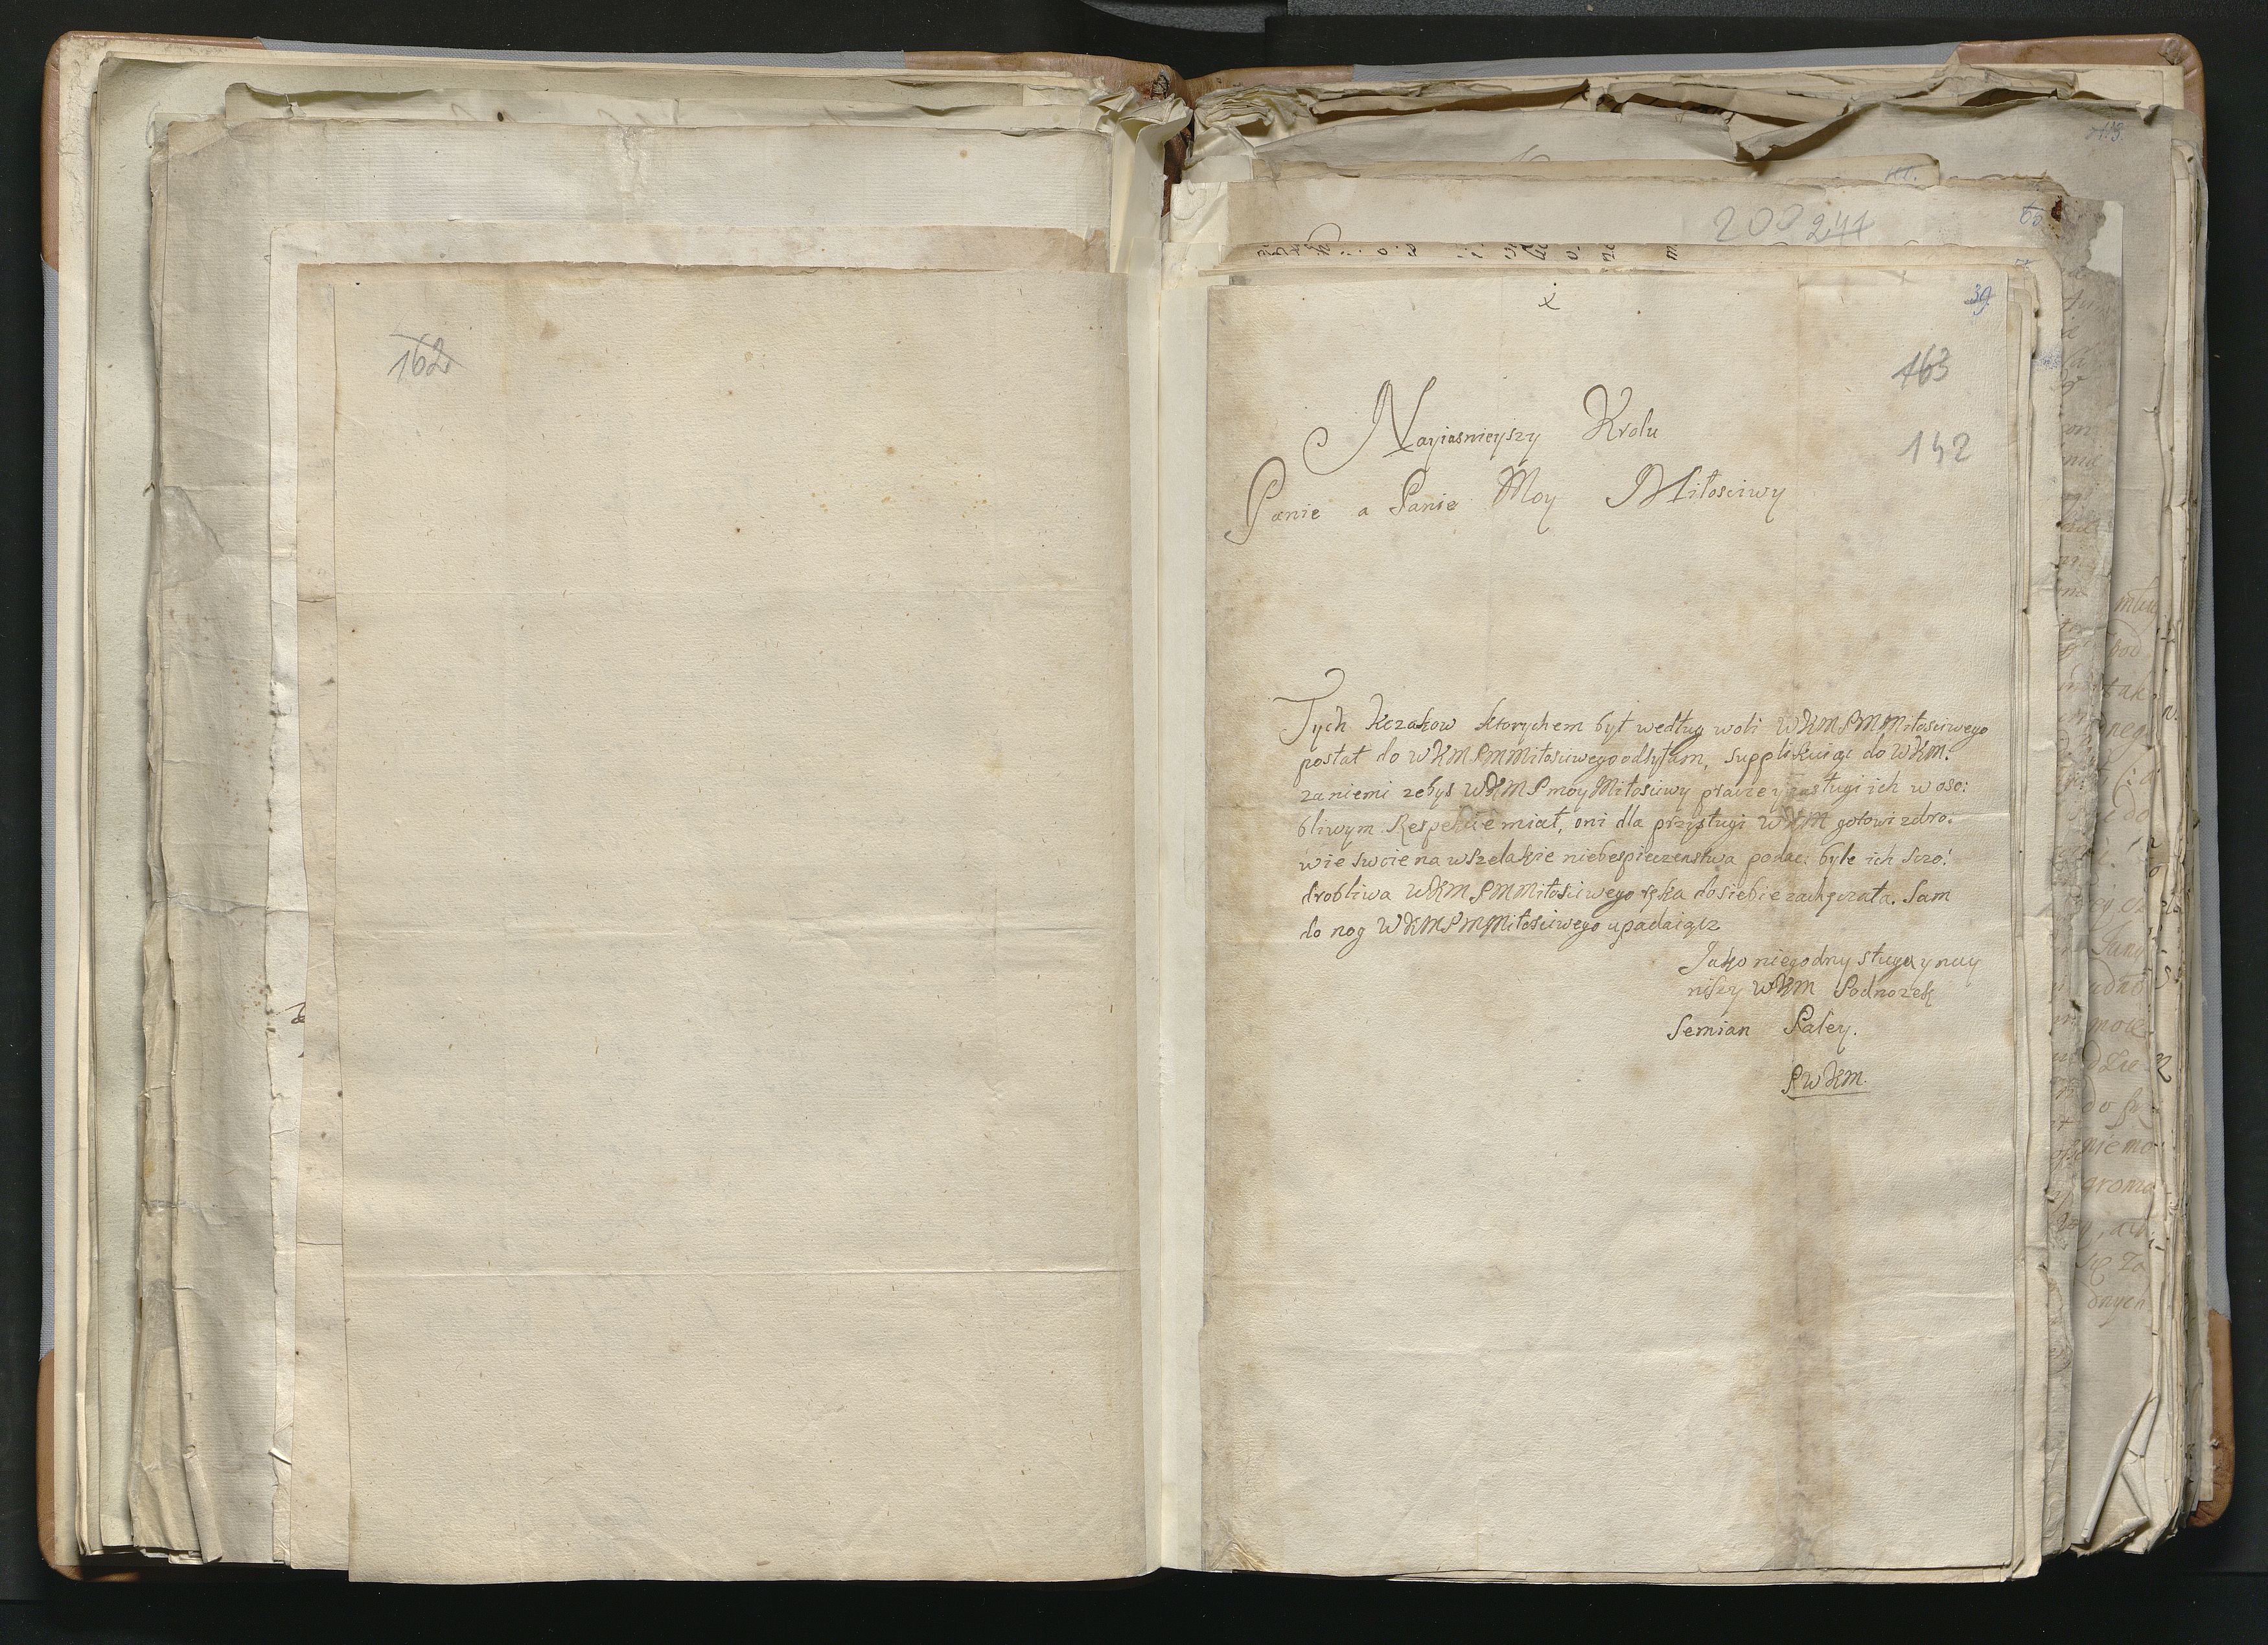 162
200 244
60
x
39
163
142
Nayiasnieyszy Krolu
Panie a Panie Moy Miłosciwy
Tych Kozakow ktorychem był według woli WKMPMMiłosciwego
posłał do WKMPMMiłosciwego odsyłam, supplikuiąc do WKM:
za niemi zebys WKMP moy Miłosciwy prace y zasługi ich w oso:
bliwym Respekcie miał, oni dla przysługi WKM gotowi zdro:
wie swoie na wszelakie niebespieczenstwa podac: byle ich sczo:
drobliwa WKMPMMiłosciwego ręka do siebie zachęcała. Sam
do nog WKMPMMiłosciwego upadaiąc
Jako niegodny sługa y nay
niszy WKM Podnozek
Semian Paley.
PWKM.